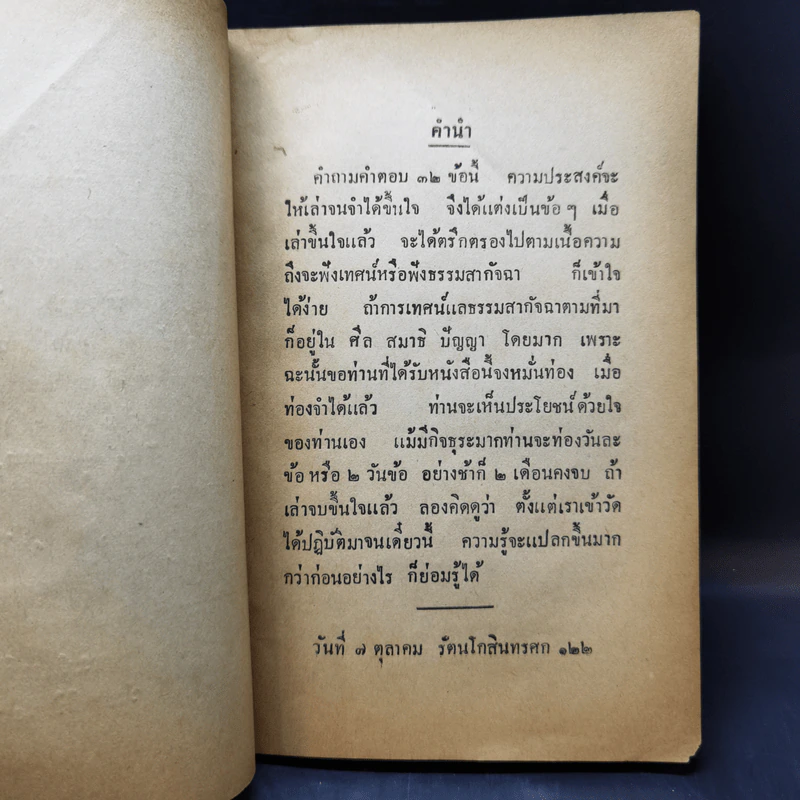 คำนำ
คำถามคำตอบ ๓๒ ข้อนี้ ความประสงค์จะ
ให้เล่าจนจำได้ขึ้นใจ จึงได้แต่งเป็นข้อ ๆ เมื่อ
เล่าขึ้นใจแล้ว จะได้ตรึกตรองไปตามเนื้อความ
ถึงจะฟังเทศน์หรือฟังธรรมสากัจฉา ก็เข้าใจ
ได้ง่าย ถ้าการเทศน์แลธรรมสากัจฉาตามที่มา
ก็อยู่ใน ศีล สมาธิ ปัญญา โดยมาก เพราะ
ฉะนั้นขอท่านที่ได้รับหนังสือนี้จงหมั่นท่อง เมื่อ
ท่องจำได้แล้ว ท่านจะเห็นประโยชน์ด้วยใจ
ของท่านเอง แม้มีกิจธุระมากท่านจะท่องวันละ
ข้อ หรือ ๒ วันข้อ อย่างช้าก็ ๒ เดือนคงจบ ถ้า
เล่าจบขึ้นใจแล้ว ลองคิดดูว่า ตั้งแต่เราเข้าวัด
ได้ปฏิบัติมาจนเดี๋ยวนี้ ความรู้จะแปลกขึ้นมาก
กว่าก่อนอย่างไร ก็ย่อมรู้ได้
วันที่ ๗ ตุลาคม รัตนโกสินทรศก ๑๒๒